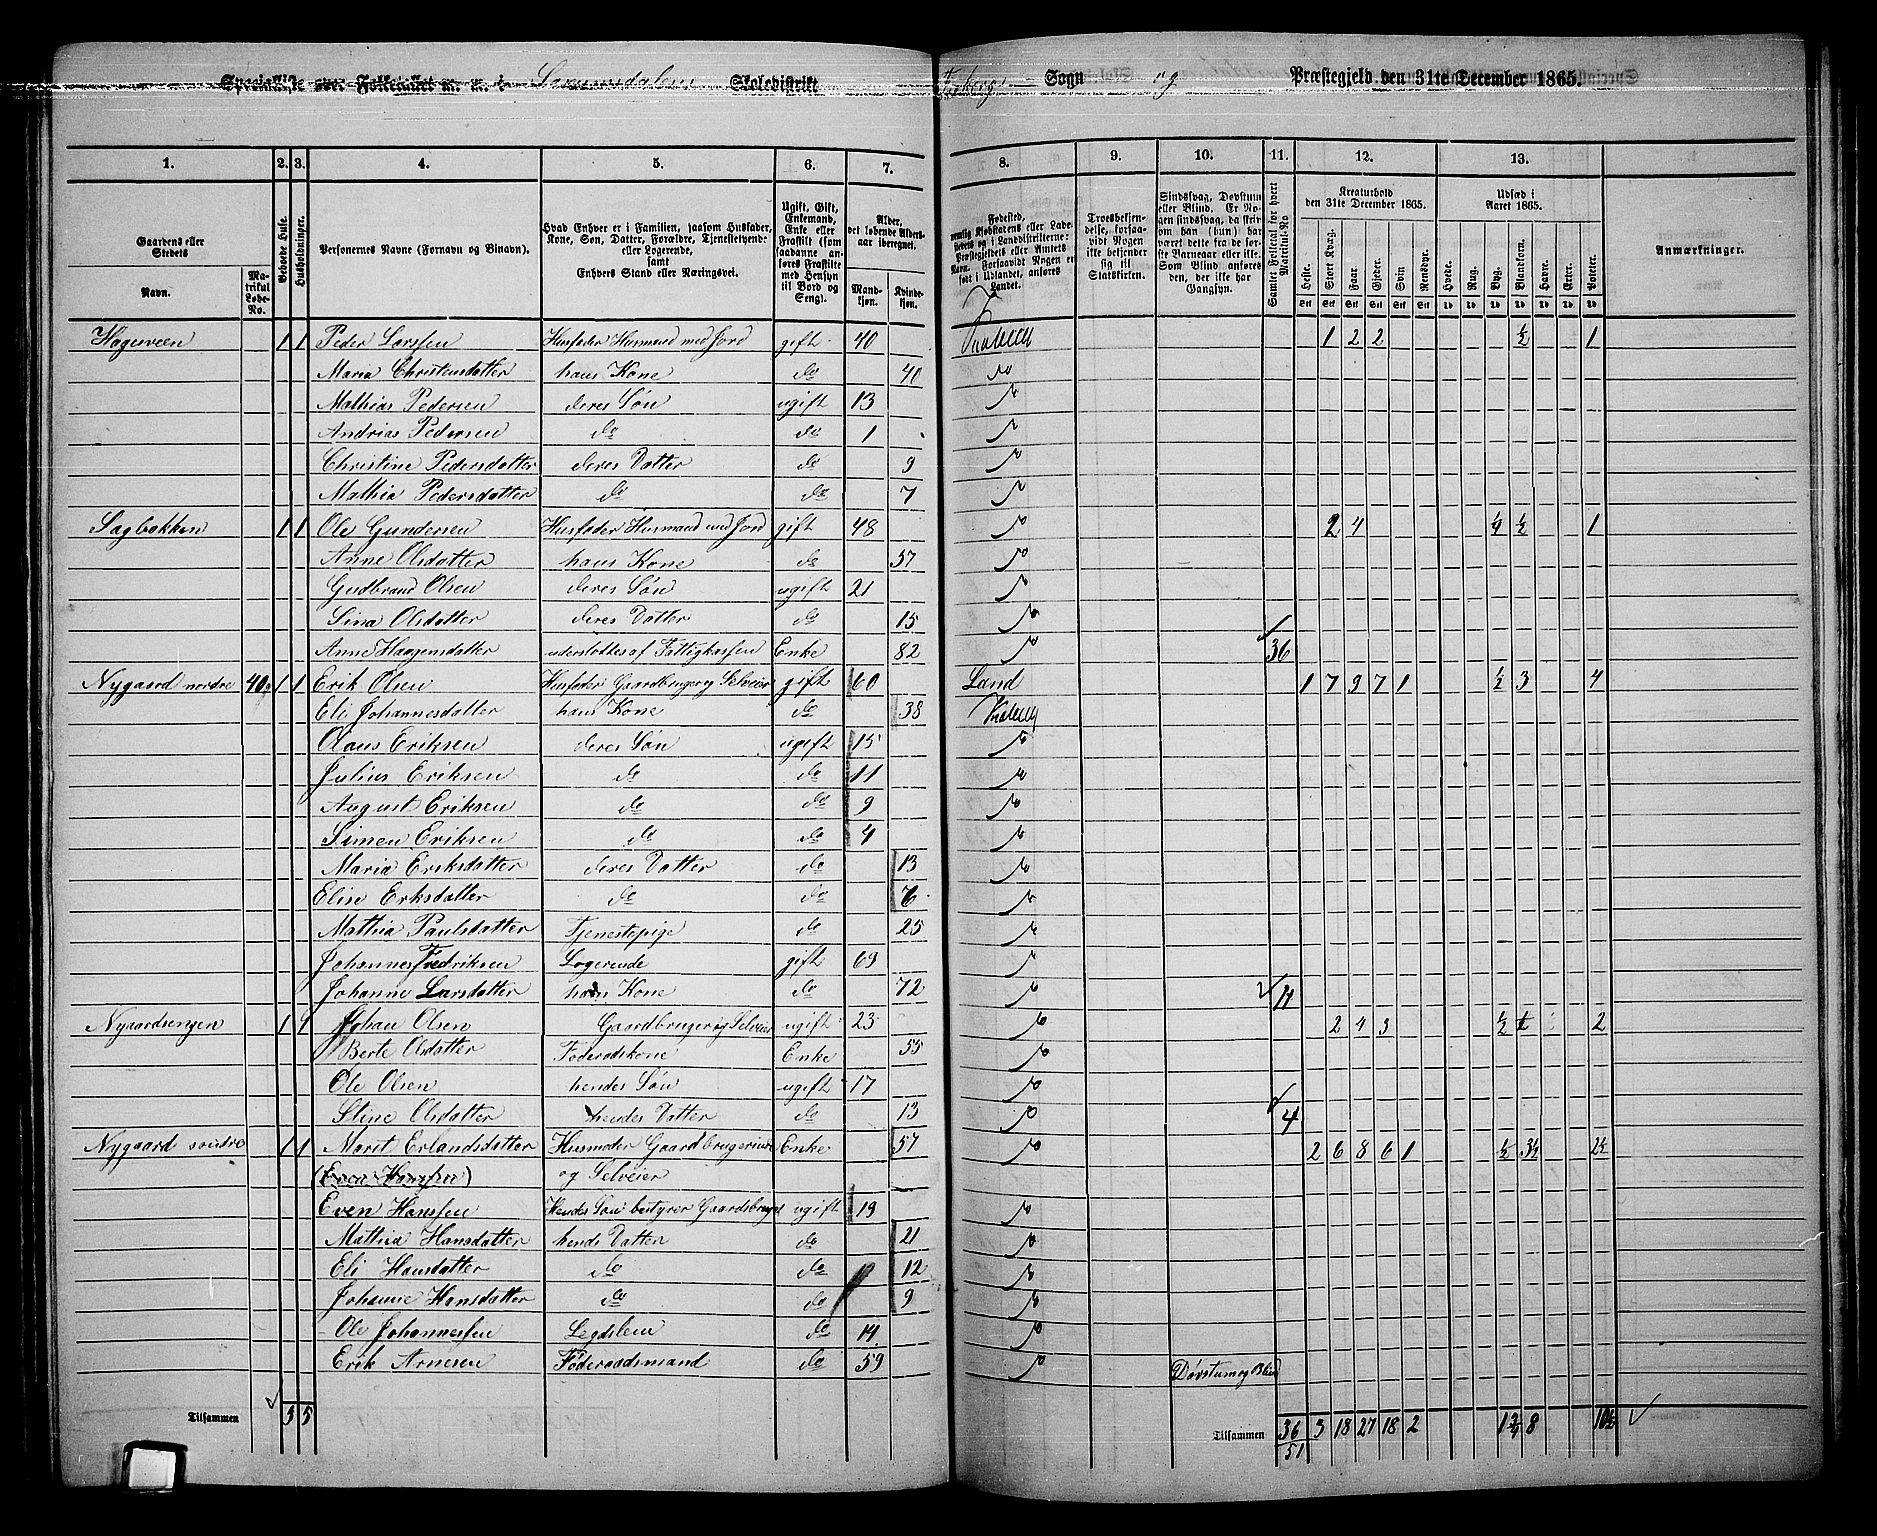 Specialliste over Folketallet m. m. i Skoledistrikt Sogn og Præstegjeld den 31te December 1865.
1. 2. 3. 4. 5. 6. 7. 8. 9. 10. 11. 12. 13.
Gaardens eller Stedets Navn.
Matrikul Løbe-No.
Beboede Huse.
Husholdninger.
Personernes Navne (Fornavn og Binavn).
Hvad Enhver er i Familien, saasom Husfader, Kone, Søn, Datter, Forældre, Tjenestetyende eller Logerende, samt Enhvers Stand eller Næringsvei.
Ugift, Gift, Enkemand, Enke eller Fraskilt (som saadanne anføres Fraskilte med Hensyn til Bord og Seng).
Alder, det løbende Aldersaar iberegnet.
Mandkjøn. Kvindekjøn.
Fødested,
Troesbekjendelse, forsaavidt Nogen ikke bekjender sig til Statskirken.
Sindssvag, Døvstum eller Blind. Er Nogen sindssvag, da skrives om han (hun) har været dette fra de førsste Barneaar eller ei. Som Blind anføres de, der ikke har Gangsyn.
Samlet Folketal for hvert Matrikul-No
Kreaturhold den 31te December 1865.
Heste. Stort Kvæg. Faar. Gjeder. Svin. Rensdyr.
Udsæd i Aaret 1865.
Hvede. Rug. Byg. Blandkorn. Havre. Erter. Poteter.
Anmærkninger.
Hageveen 1 1 Peder Larssen Husfader Husmand med Jord gift 40 1 2 2 ½ 1
Maria Christensdatter hans Kone do 40
Mathias Pedersen deres Søn ugift 13
Andrias Pedersen do do 1
Christine Pedersdatter deres Datter do 9
Mathia Pedersdatter do do 7
Sagbakken 1 1 Ole Gundersen Husfader Husmand med Jord gift 48 2 4 ¼ ½ 1
Anne Olsdatter hans Kone do 57
Gudbrand Olsen deres Søn ugift 21
Sina Olsdatter deres Datter do 15
Anne Haagensdatter understøttes af Fattigkassen Enke 82 36
Nygaard nordre 40 1 1 Erik Olsen Husfader Gaardbruger og Selveier gift 60 Land 1 7 9 7 1 ½ 3 4
Eli Johannesdatter hans Kone do 38
Claus Eriksen deres Søn ugift 15
Julius Eriksen do do 11
August Eriksen do do 9
Simen Eriksen do do 4
Maria Eriksdatter deres Datter do 13
Elise Eriksdatter do do 6
Mathia Paulsdatter Tjenestepige do 25
Johannes Fredriksen Logerende gift 69
Johanne Larsdatter hans Kone do 72 11
Nygaardsengen 1 1 Johan Olsen Gaardbruger og Selveier ugift 23 2 4 3 ½ 1 2
Berte Olsdatter Føderaadskone Enke 55
Ole Olsen hendes Søn ugift 17
Stine Olsdatter hendes Datter do 13 4
Nygaard søndre 1 1 Marit Erlandsdatter Husmoder Gaardbrugerinde Enke 57 2 6 8 6 1 ½ 3½ 2½
(Even Hanssen) og Selveier
Even Hanssen Hendes Søn bestyrer Gaardsbruget ugift 19
Mathia Hansdatter hends Datter do 21
Eli Hansdatter do do 12
Johanne Hansdatter do do 9
Ole Johannessen Legdslem do 14
Erik Arnesen Føderaadsmand do 59 Døvstum og Blind
Tilsammen 5 5 Tilsammen 36 3 18 27 18 2 1¾ 8 10½
51